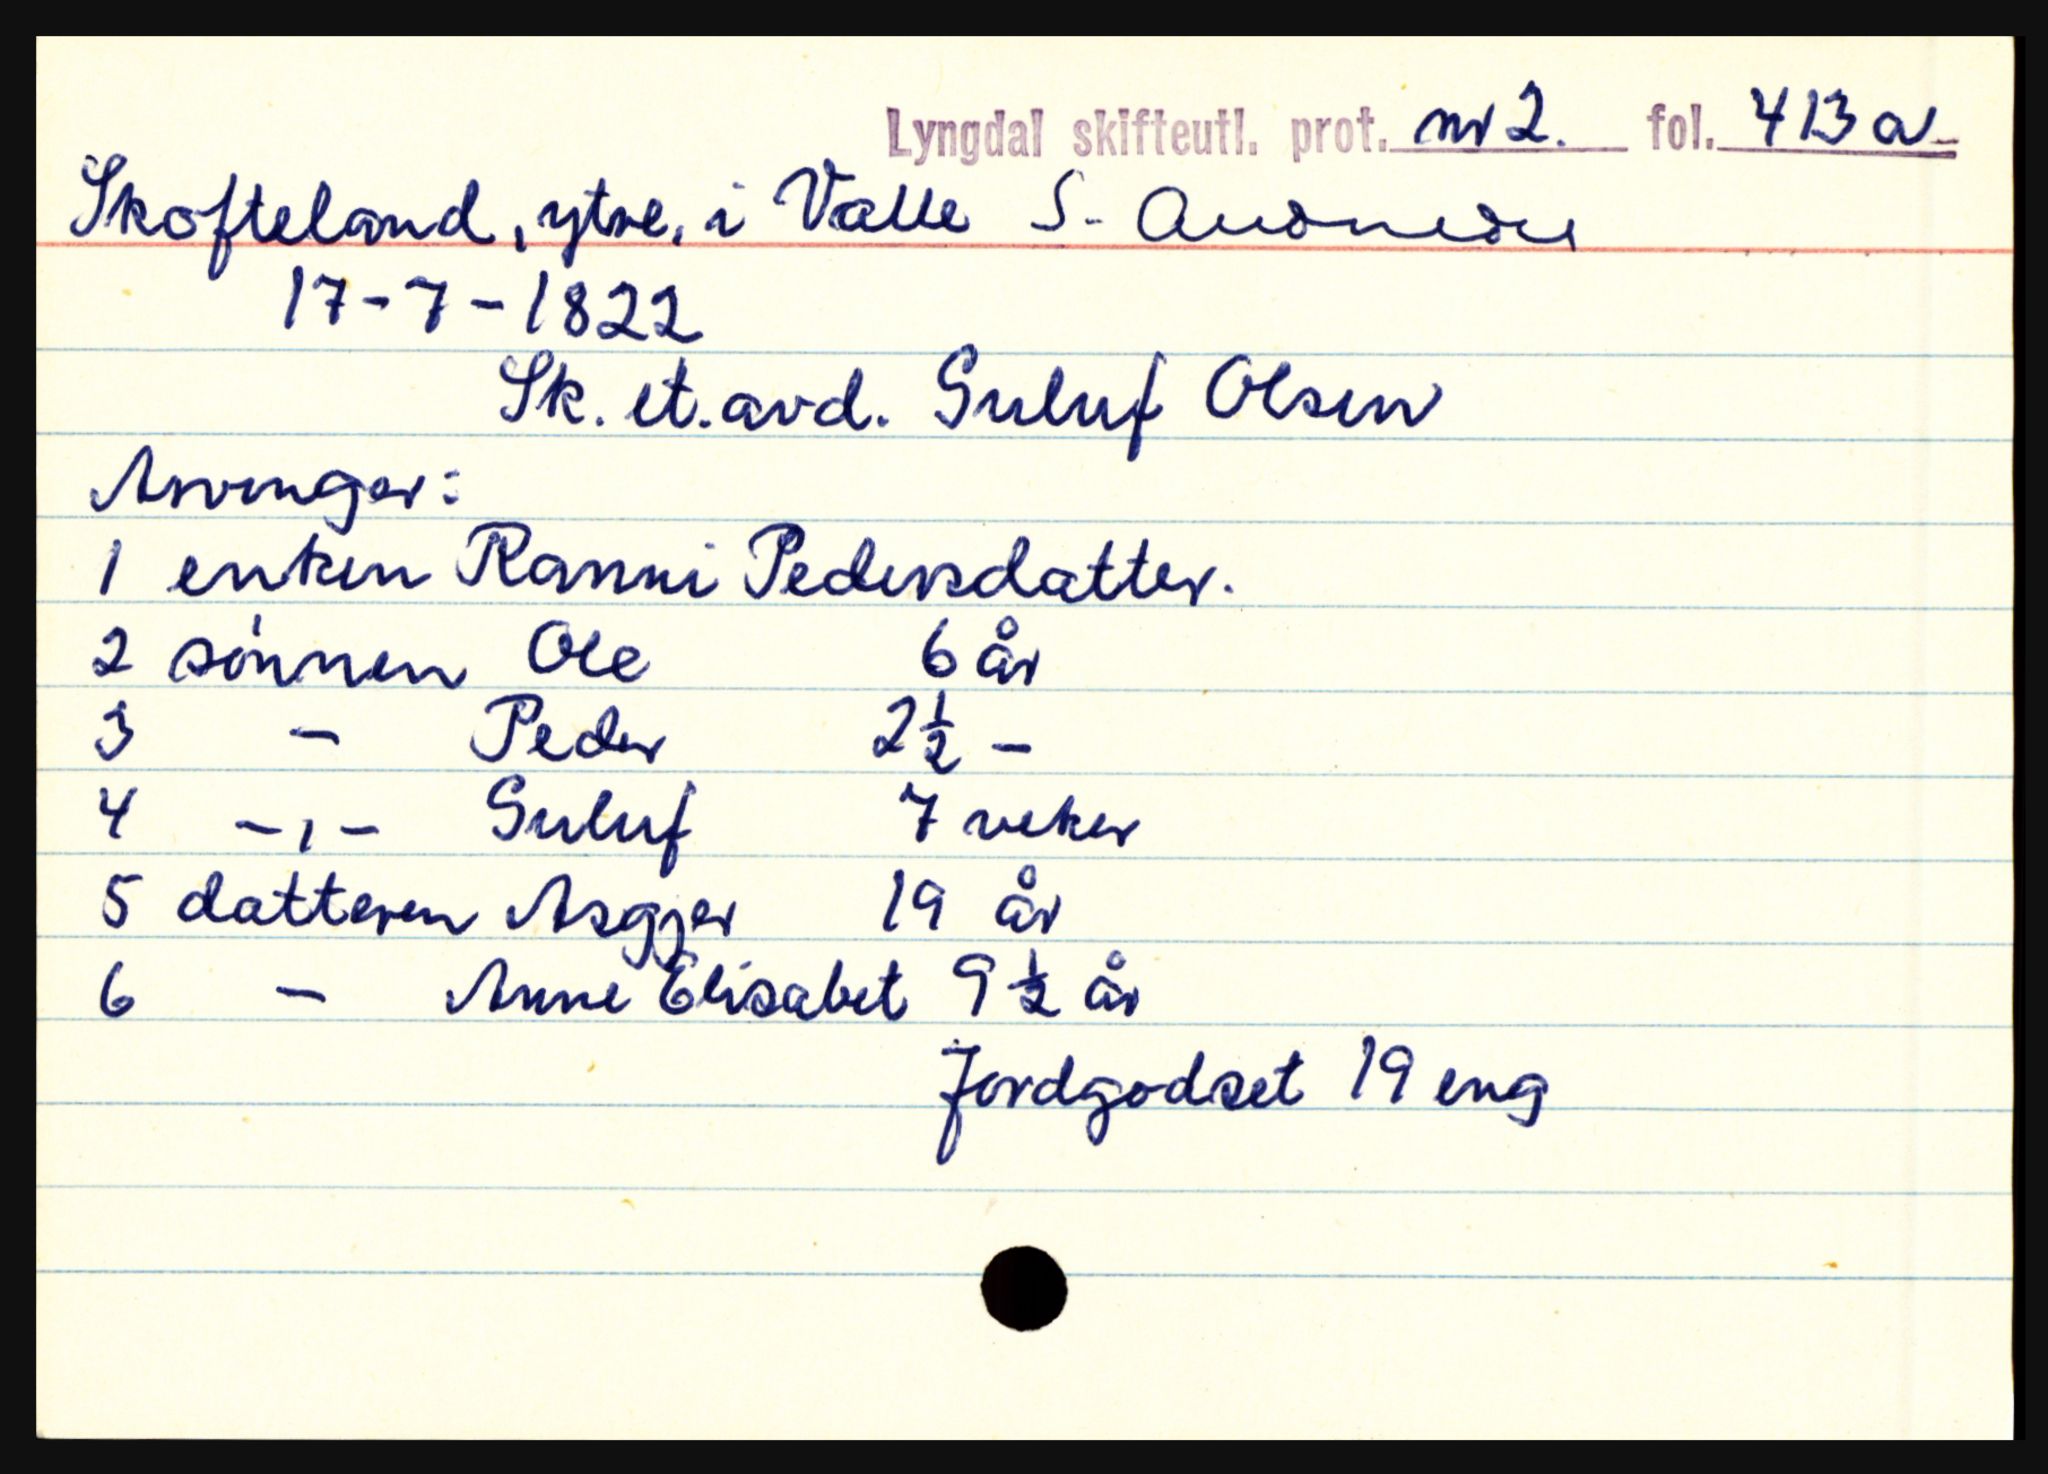 Lyngdal skifteutl. prot. nr 2. fol. 413 a
Skofteland, ytre, i Valle S- Audnedu
17-7-1822
Sk. et. avd. Guluf Olsen
Arvinger:
1 enken Ranni Pedersdatter.
2 sønnen Ole 6 år
3 - Peder 2½ -
4 -,- Guluf 7 veker
5 datteren Asgjer 19 år
6 - Anne Elisabet 9½ år
Jordgodset 19 eng